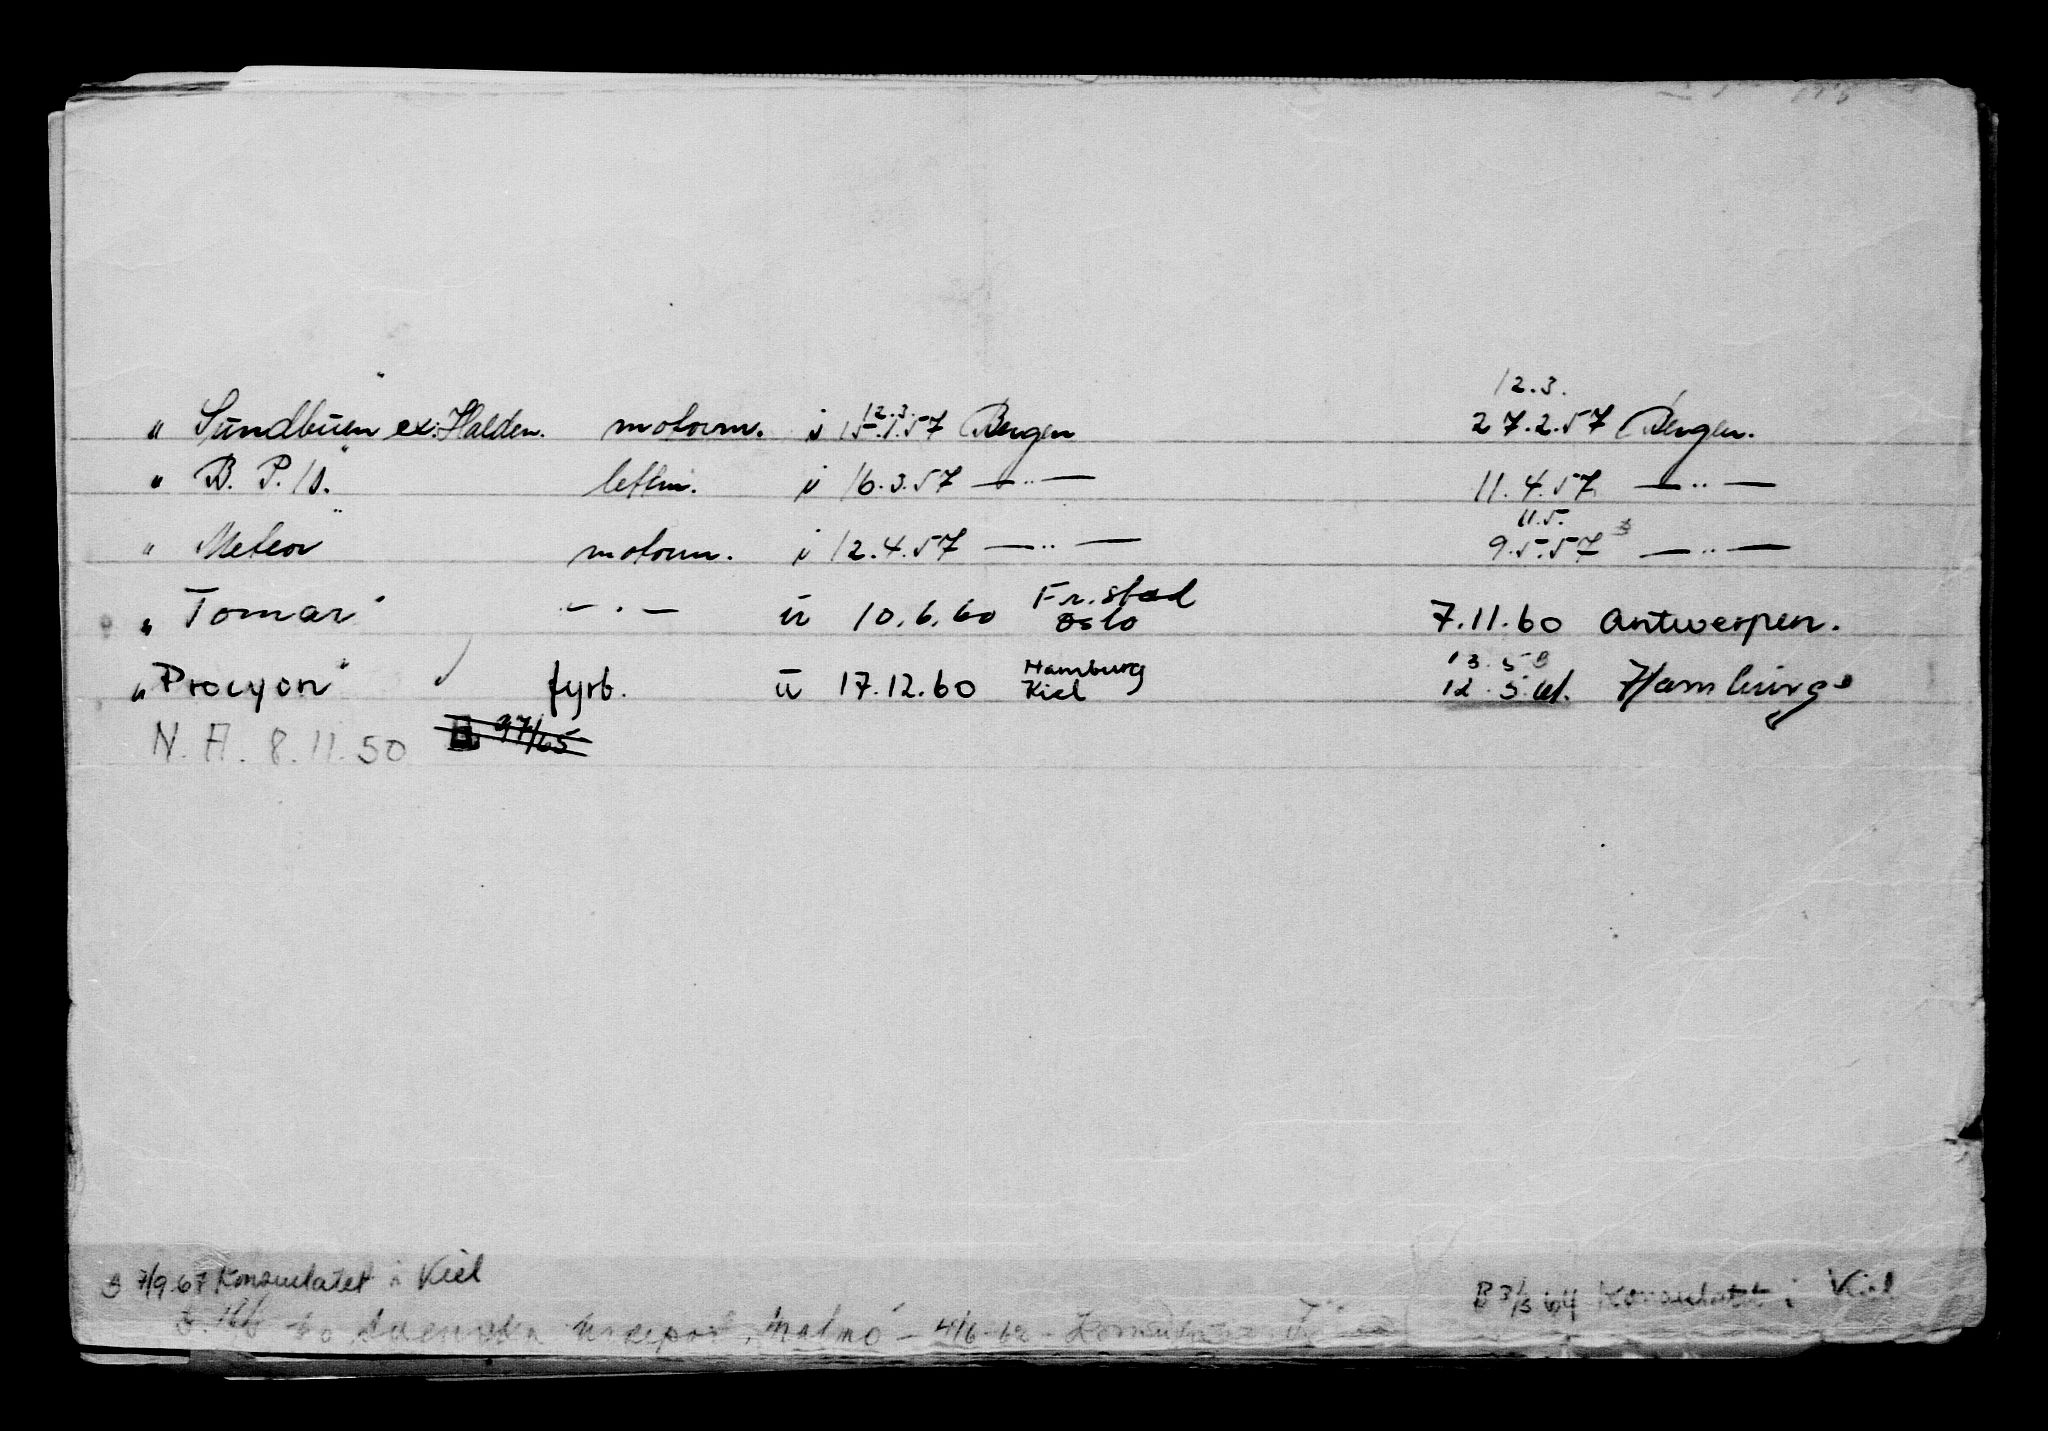 12.3.
„ Sundbuen" ex: Halden. motorm. i 15.1.57 12.3. Bergen 27.2.57 Bergen.
„ B. P. /S." lettm. i 16.3.57 — „ — 11.4.57 — „ —
11.5.
„ Meteor" motorm. i 12.4.57 — „ — 9.5.57 — „ —
„ Tomar" — „ — u 10.6.60 Fr.stad Oslo 7.11.60 Antwerpen.
13.5
„ Procyon" fyrb. u 17.12.60 Hamburg Kiel 12.5.61. Hamburg
N. A. 8.11.50 97/65
B 7/9.67 Konsulatet i Kiel
B 3/3 64 Konsulatet i Kiel
Malmö - 4/6-62 -